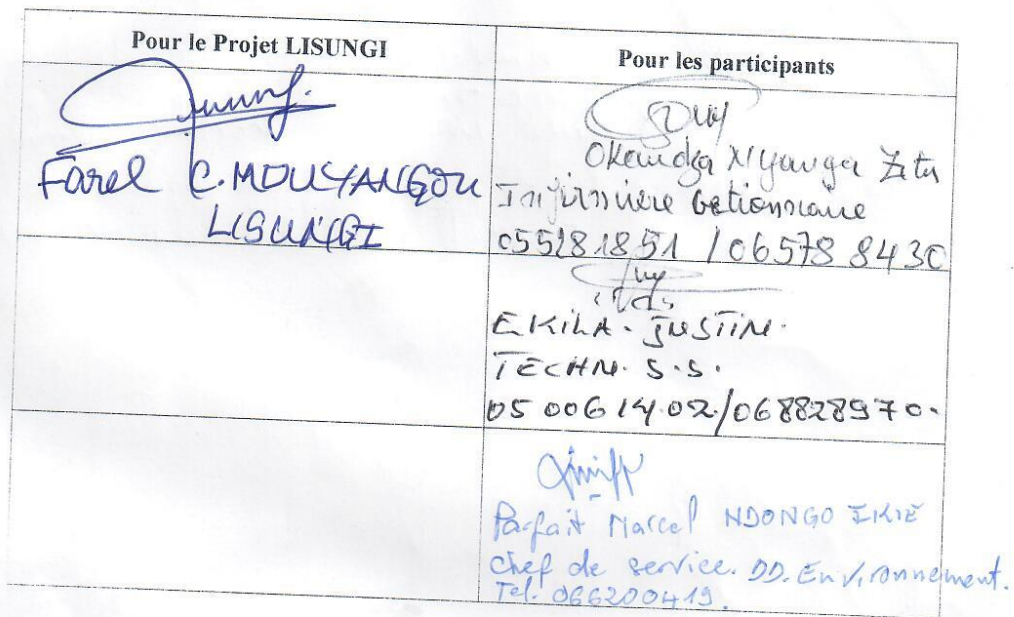 Pour le Projet LISUNGI
Pour les participants
Farel C. MOUYANGOU
LISUNGI
Okandza Nyanga Zita
Gestionnaire
055281851 / 065788430
EKILA. JUSTIN.
TECHN. S.S.
05 006 14.02/068828970.
Parfait Marcel NDONGO IKIE
Chef de service. DD. Environnement.
Tel. 066200419.